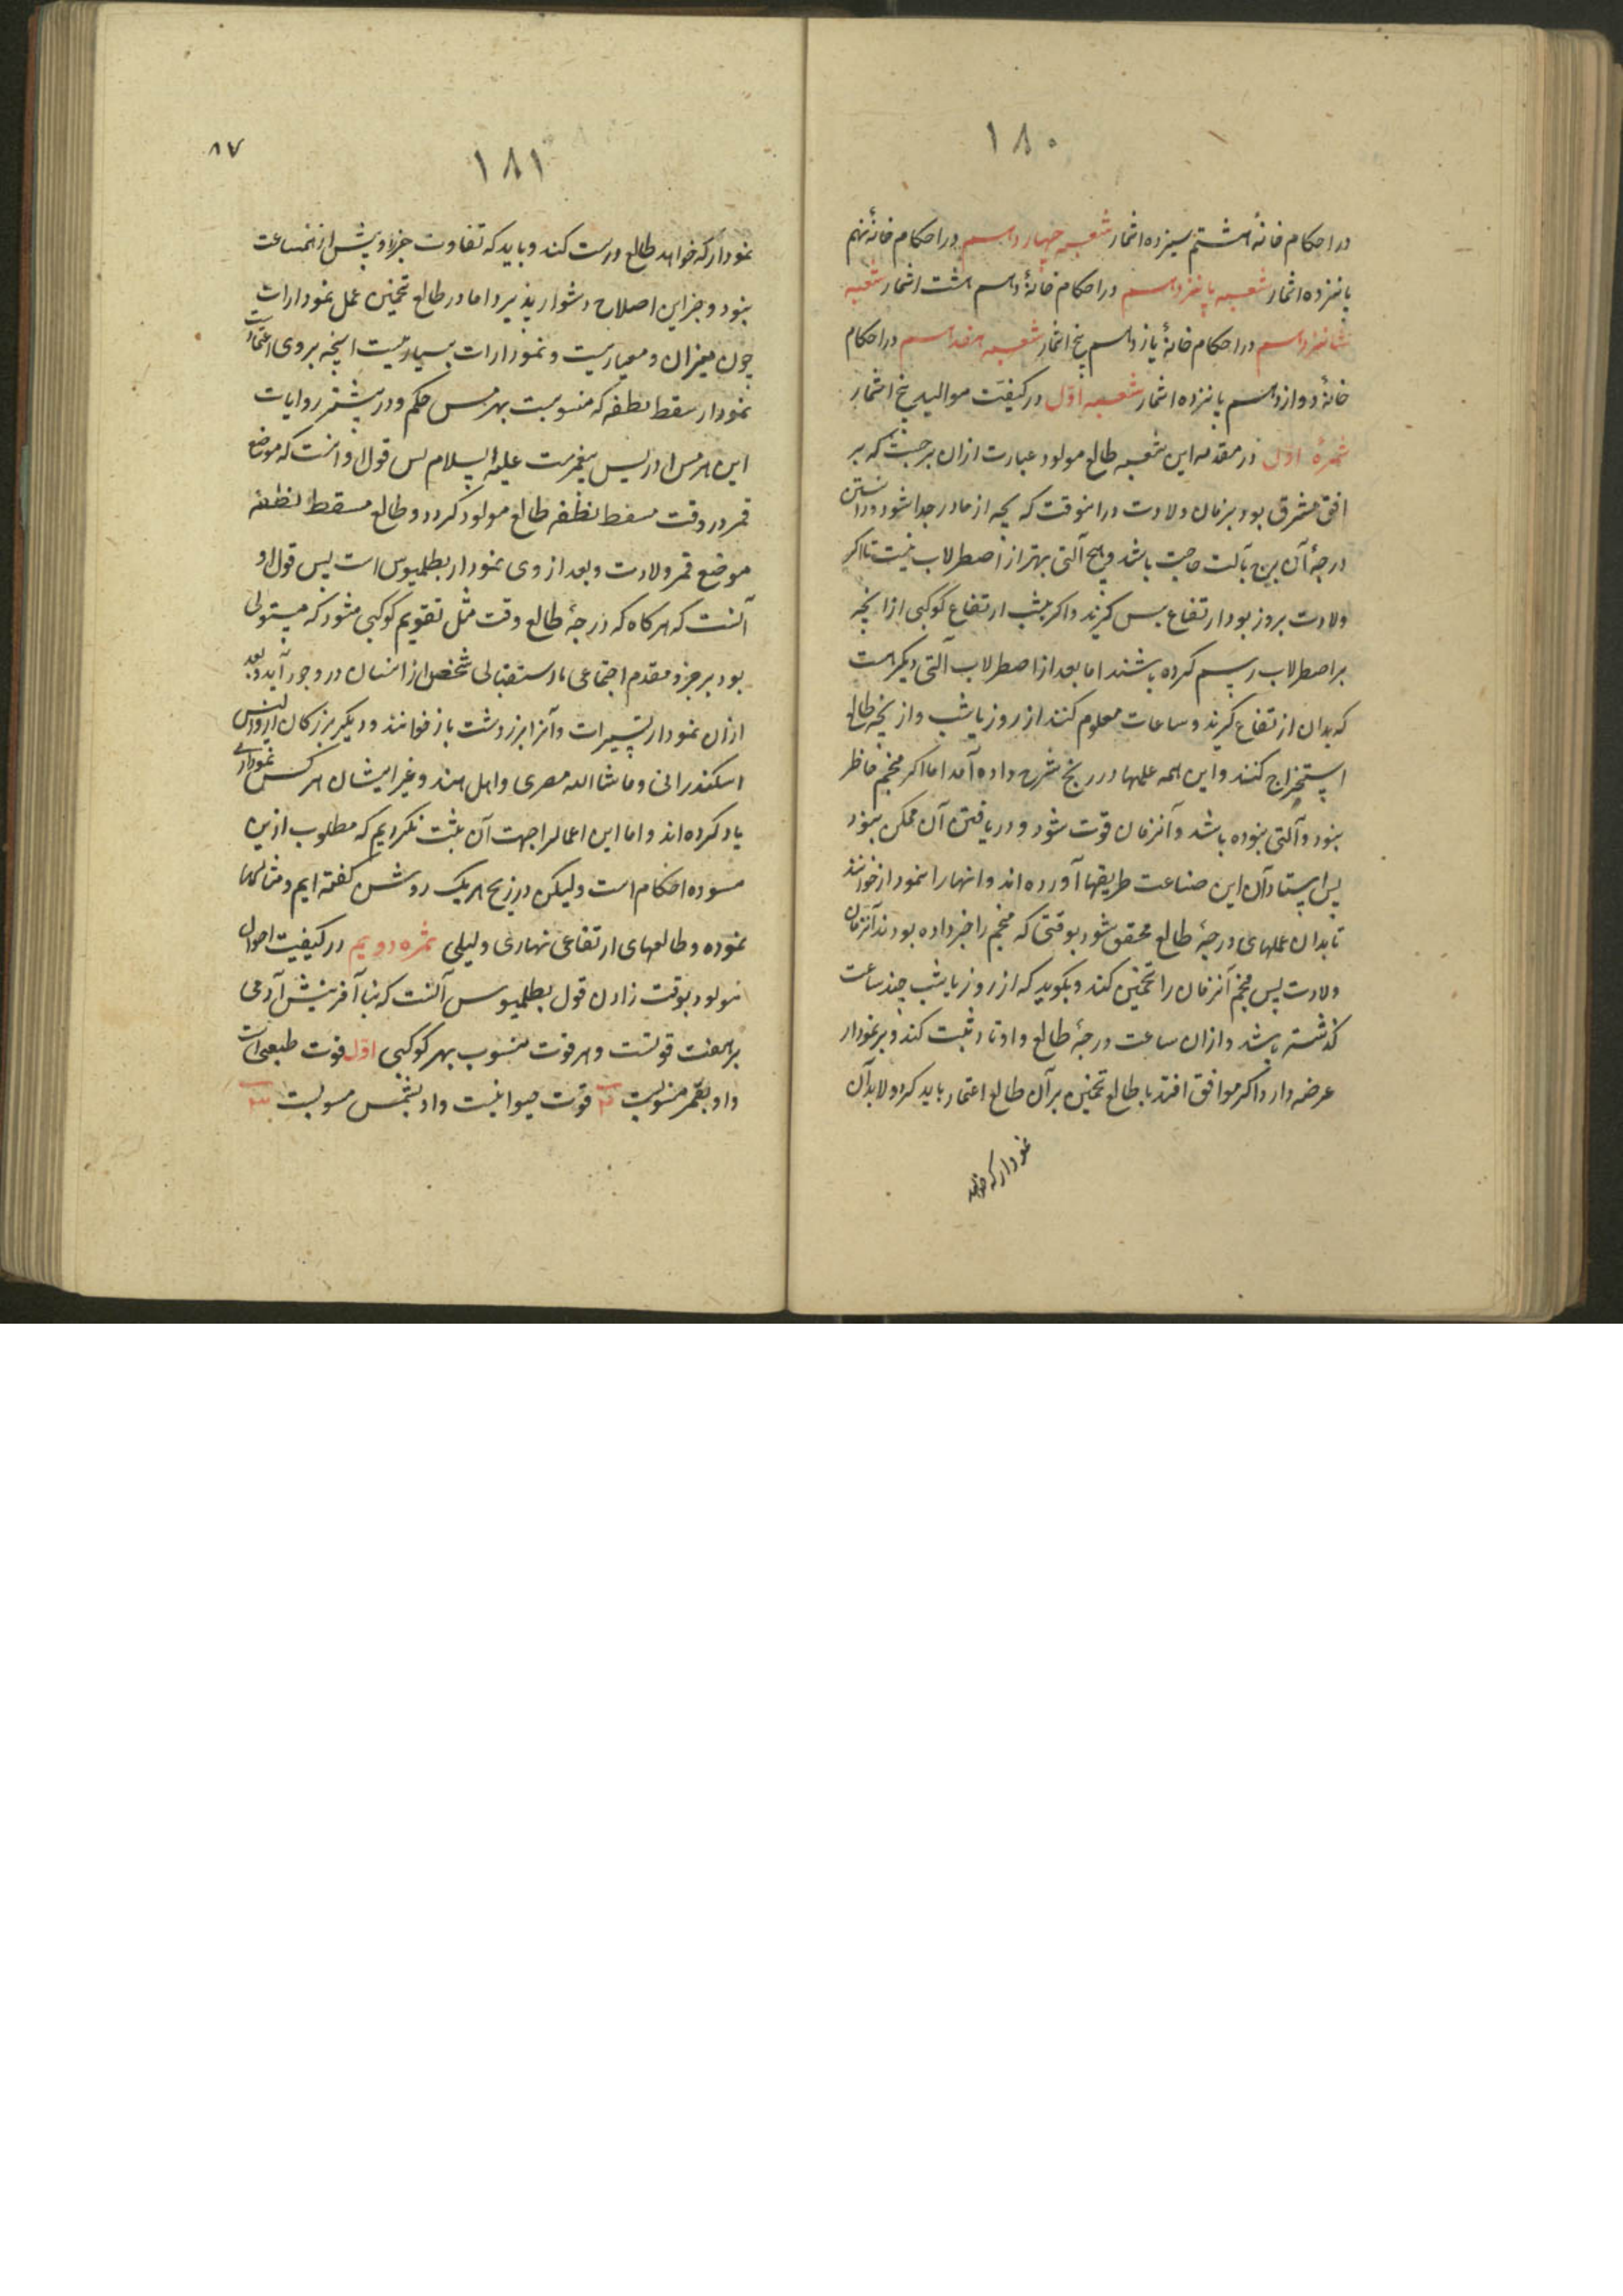 ۱۸۰
در احکام خانهٔ هشتم سیزده اثمار شعبه چهاردهم در احکام خانهٔ نهم
پانزده اثمار شعبه پانزدهم در احکام خانهٔ دهم هشت اثمار شعبه
شانزدهم در احکام خانهٔ یازدهم پنج اثمار شعبه هفدهم در احکام
خانهٔ دوازدهم پانزده اثمار شعبه اول در کیفیت موالید پنج اثمار
ثمرهٔ اول در مقدمه این شعبه طالع مولود عبارت ازان برجیست که بر
افق مشرق بود بزمان ولادت درانوقت که بچه از مادر جدا شود و دانستن
درجهٔ آن برج بآلت حاجت باشد و هیچ آلتی بهتر از اصطرلاب نیست تا اگر
ولادت بروز بود ارتفاع شمس گیرند و اگر بشب ارتفاع کوکبی از انچه
بر اصطرلاب رسم کرده باشند اما بعد از اصطرلاب آلتی دیگر هست
که بدان ارتفاع گیرند و ساعات معلوم کنند از روز یا شب و از نیجه طالع
استخراج کنند و این همه عملها در زیج شرح داده آمد اما اگر منجم حاظر
نبود و آلتی نبوده باشد و آنزمان فوت شود و دریافتن آن ممکن نبود
پس استادان این صناعت طریقها آورده اند و انها را نمودار خوانند
تا بدان عملهای درجهٔ طالع محقق شود بوقتی که منجم را خبر داده بودند آنزمان
ولادت پس منجم آنزمان را تخمین کند و بگوید که از روز یا شب چند ساعت
گذشته باشد و ازان ساعت درجهٔ طالع و اوتاد ثبت کند و بر نمودار
عرضه دارد اگر موافق افتد با طالع تخمین بر آن طالع اعتماد باید کرد و لابد آن
نمودار که خواهد
۸۷
۱۸۱
نمودار که خواهد طالع درست کند و باید که تفاوت جزؤ و بیش از نیمساعت
نبود و جز این اصلاح دشوار پذیرد اما در طالع تخمین عمل نمودارات
چون میزان و معیاریست و نمودارات بسیاریست انچه بروی اعتمادست
نمودار سقط نطفه که منسوبست بهرمس حکم و در بیشتر روایات
این هرمس ادریس پیغمبرست علیه السلام پس قول او انست که موضع
قمر در وقت مسقط نطفه طالع مولود گردد و طالع مسقط نطفه
موضع قمر ولادت و بعد از وی نمودار بطلمیوس است پس قول او
آنست که هرگاه که درجهٔ طالع وقت مثل تقویم کوکبی شود که مستولی
بود بر جزو مقدم اجتماعی یا استقبالی شخص از انسان در وجود آید و بعد
ازان نمودار تسییرات و آنرا بزردشت باز خوانند و دیگر بزرگان
اسکندرانی و ماشاالله مصری و اهل هند و غیر ایشان هر کس نموداری
یاد کرده اند و اما این اعمال را جهت آن ثبت نکردیم که مطلوب ازین
مسوده احکام است ولیکن در زیج هر یک روشن گفته ایم و مثالها
نموده و طالعهای ارتفاعی نهاری و لیلی ثمره دویم در کیفیت احوال
مولود بوقت زادن قول بطلمیوس آنست که بنا آفرینش آدمی
بر هفت قوتست و هر قوت منسوب بهر کوکبی اول قوت طبیعی است
و او بقمر منسوبست قوت حیوانیست و او بشمس منسوبست